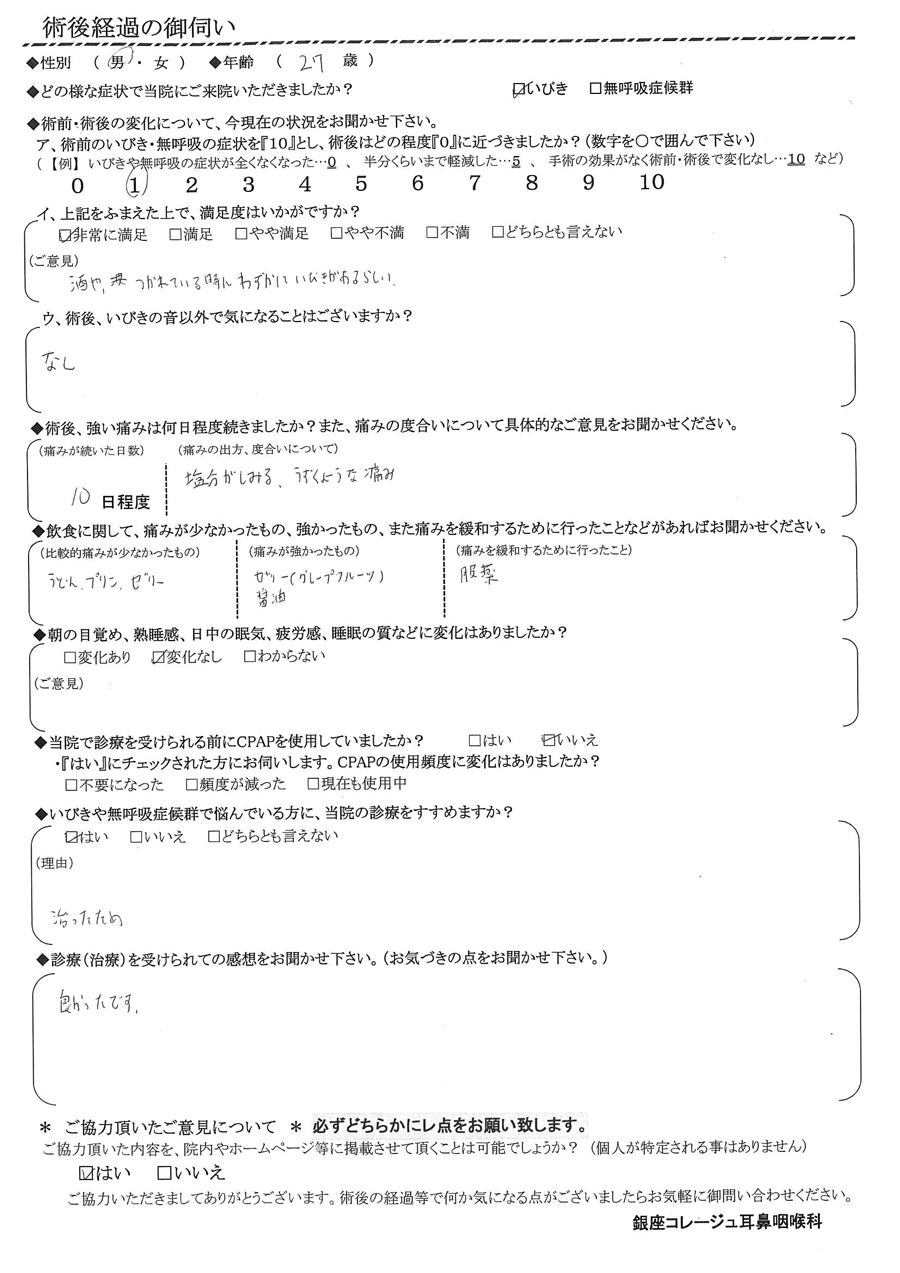 術後経過の御伺い
◆性別 （ 男 ・ 女 ） ◆年齢 （ 27 歳 ）
◆どの様な症状で当院にご来院いただきましたか？ ☑いびき □無呼吸症候群
◆術前・術後の変化について、今現在の状況をお聞かせ下さい。
ア、術前のいびき・無呼吸の症状を『10』とし、術後はどの程度『0』に近づきましたか？（数字を○で囲んで下さい）
（【例】 いびきや無呼吸の症状が全くなくなった…0 、 半分くらいまで軽減した…5 、 手術の効果がなく術前・術後で変化なし…10 など）
0 1 2 3 4 5 6 7 8 9 10
イ、上記をふまえた上で、満足度はいかがですか？
☑非常に満足 □満足 □やや満足 □やや不満 □不満 □どちらとも言えない
（ご意見）
酒や, つかれている時に わずかに いびきがあるらしい.
ウ、術後、いびきの音以外で気になることはございますか？
なし
◆術後、強い痛みは何日程度続きましたか？また、痛みの度合いについて具体的なご意見をお聞かせください。
（痛みが続いた日数） （痛みの出方、度合いについて）
塩分がしみる、うずくような痛み
10 日程度
◆飲食に関して、痛みが少なかったもの、強かったもの、また痛みを緩和するために行ったことなどがあればお聞かせください。
（比較的痛みが少なかったもの） （痛みが強かったもの） （痛みを緩和するために行ったこと）
うどん, プリン, ゼリー ゼリー(グレープフルーツ) 服薬
醤油
◆朝の目覚め、熟睡感、日中の眠気、疲労感、睡眠の質などに変化はありましたか？
□変化あり ☑変化なし □わからない
（ご意見）
◆当院で診療を受けられる前にCPAPを使用していましたか？ □はい ☑いいえ
・『はい』にチェックされた方にお伺いします。CPAPの使用頻度に変化はありましたか？
□不要になった □頻度が減った □現在も使用中
◆いびきや無呼吸症候群で悩んでいる方に、当院の診療をすすめますか？
☑はい □いいえ □どちらとも言えない
（理由）
治ったため
◆診療（治療）を受けられての感想をお聞かせ下さい。（お気づきの点をお聞かせ下さい。）
良かったです.
＊ ご協力頂いたご意見について ＊ 必ずどちらかにレ点をお願い致します。
ご協力頂いた内容を、院内やホームページ等に掲載させて頂くことは可能でしょうか？ （個人が特定される事はありません）
☑はい □いいえ
ご協力いただきましてありがとうございます。術後の経過等で何か気になる点がございましたらお気軽に御問い合わせください。
銀座コレージュ耳鼻咽喉科